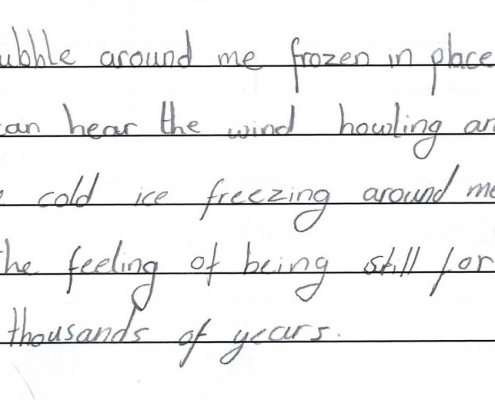 ubble around me frozen in place
can hear the wind howling an
cold ice freezing around me
the feeling of being still for
thousands of years.